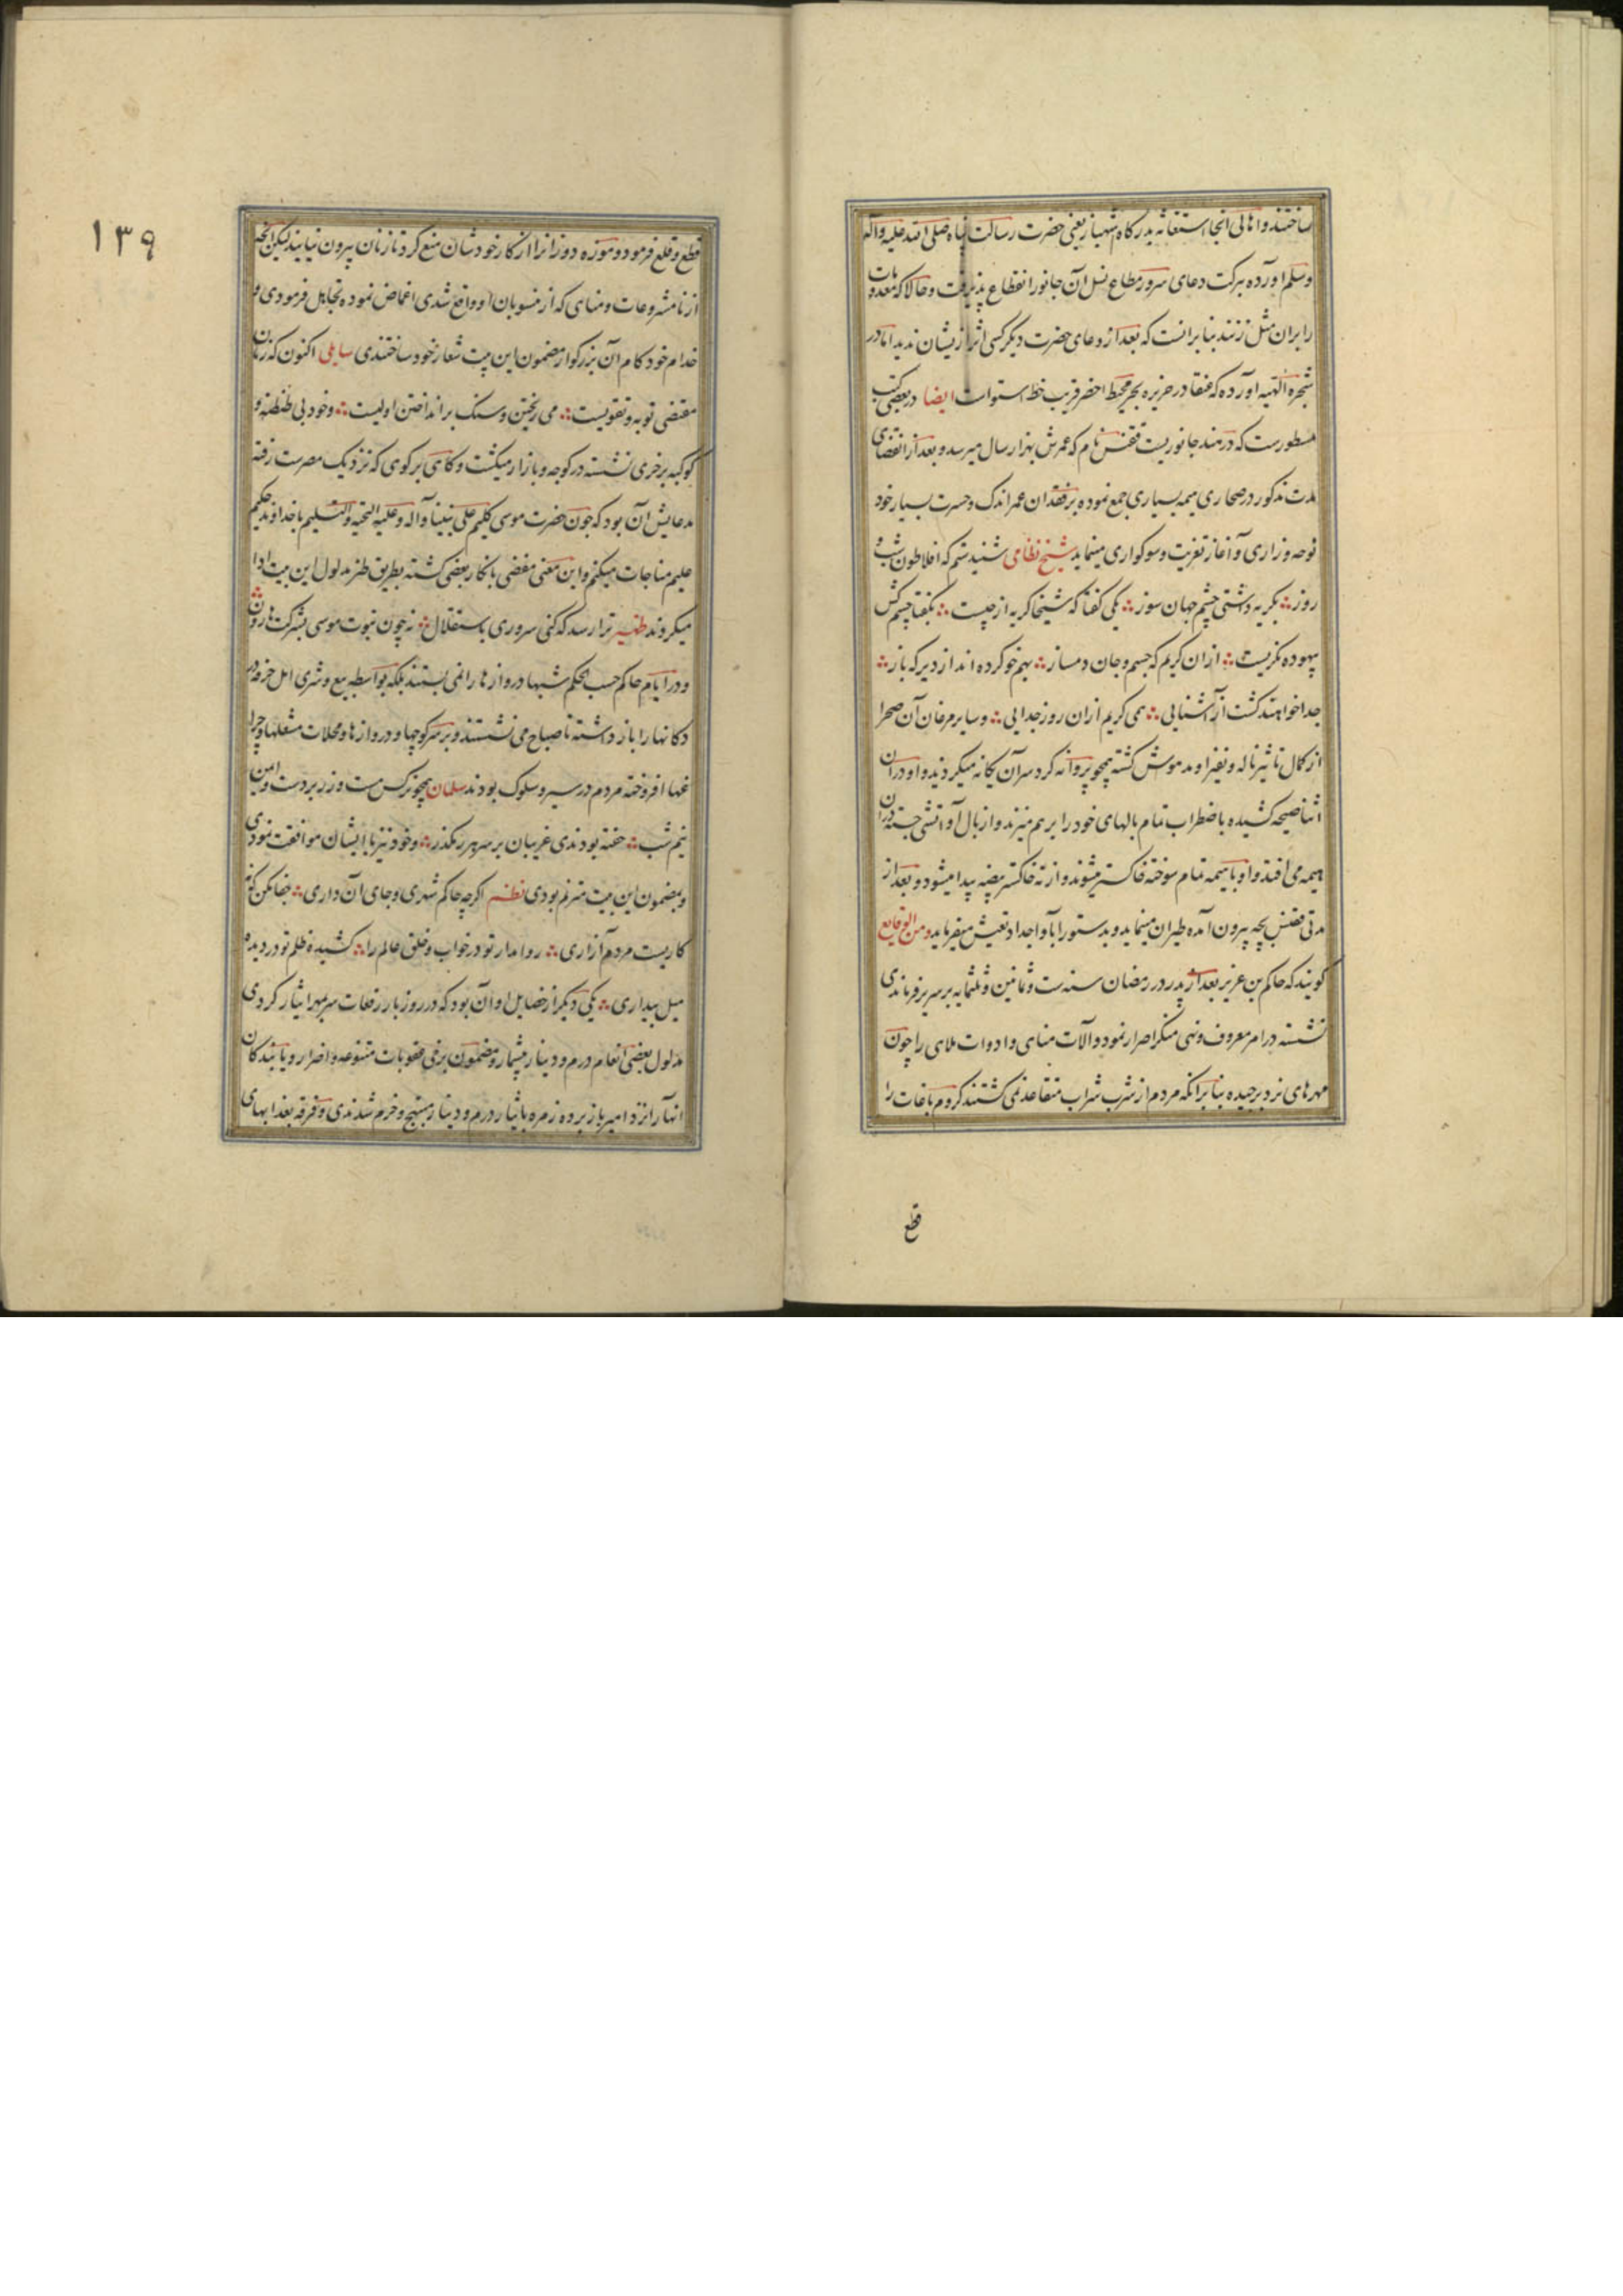 ساختند و اهالی انجا استغاثه بدرکاه شهباز یعنی حضرت رسالت پناه صلی الله علیه و آله
و سلم اورده ببرکت دعای سرور مطاع نسل آن جانور انقطاع پذیرفت و حالا که معدومات
را بران مثل زنند بنا برانست که بعد از دعای حضرت دیکر کسی اثر ازیشان ندید اما در
شجره الهیه آورده که عنقا در جزیره بحر محیط اخضر قریب خط استوات ایضا در بعضی کتب
مسطورست که در هند جانوریست ققنس نام که عمرش بهزار سال میرسد و بعد از انقضای
مدت مذکور در صحاری هیمه بسیاری جمع نموده بر فقدان عمر اندک و حسرت بسیار خود
نوحه و زاری و آغاز تعزیت و سوکواری مینماید شیخ نظامی شنیدستم که افلاطون شب و
روز بکریه داشتی چشم جهان سوز یکی کفتا که شیخا کریه از چیست بکفتا چشم کس
بیهوده نکریست ازان کریم که جسم و جان دمساز بهم خو کرده اند از دیر که باز
جدا خواهند کشت از آشنایی همی کریم ازان روز جدایی و سایر مرغان آن صحرا
از کمال تاثیر ناله و نفیر او مدهوش کشته همچو پروانه کرد سر آن یکانه میکردند و او دران
اثنا صیحه کشیده باضطراب تمام بالهای خود را بر هم میزند و از بال او آتشی جسته دران
هیمه می افتد و او با هیمه تمام سوخته خاکستر میشوند و از ته خاکستر بیضه پیدا میشود و بعد از
مدتی ققنس بچه بیرون آمده طیران مینماید و بدستور آبا و اجداد تعیش میفرماید و من الوقایع
کویند که حاکم بن عزیز بعد از پدر در رمضان سنه ست و ثمانین و ثلثمایه بر سریر فرماندهی
نشسته در امر معروف و نهی منکر اصرار نمود و آلات مناهی و ادوات ملاهی را چون
مهرهای نرد برچیده بنا برانکه مردم از شرب شراب متقاعد نمی کشتند کروم باغات را
قطع
۱۳۹
قطع و قلع فرمود و موزه دوزانرا از کار خودشان منع کرد تا زنان بیرون نیایند لیکن انچه
از نامشروعات و مناهی که از منسوبان او واقع شدی اغماض نموده تجاهل فرمودی و
خدام خودکام آن بزرکوار مضمون این بیت شعار خود ساختندی اکنون که زمان
مقتضی توبه و تقویست می ریختن و سنک برانداختن اولیست و خود بی طنطنه و
کوکبه بر خری نشسته در کوچه و بازار میکشت و کاهی بر کوهی که نزدیک مصرست رفته
مدعایش آن بود که چون حضرت موسی کلیم علی نبینا و آله و علیه التحیه و التسلیم با خداوند حکیم
علیم مناجات میکنم و این معنی مفضی بانکار بعضی کشته بطریق طنز مدلول این بیت ادا
میکردند ظهیر ترا رسد که کنی سروری باستقلال نه چون نبوت موسی بشرکت هارون
و در ایام حاکم حسب الحکم شبها دروازها را نمی بستند بلکه بواسطه بیع و شری اهل حرفه در
دکانها را باز داشته تا صباح می نشستند و بر سر کوچها و دروازها و محلات مشعلها و چرا
غها افروخته مردم در سیر و سلوک بودند سلمان همچو نرکس مست و زر بر دست و ایمن
نیم شب خفته بودندی غریبان بر سر هر رهکذر و خود نیز با ایشان موافقت نمودی
و بمضمون این بیت مترنم بودی نظم اکرچه حاکم شهری و جای آن داری جفا مکن که نه
کاریست مردم آزاری روا مدار تو در خواب و خلق عالم را کشیده ظلم تو در دیده
میل بیداری یکی دیکر از خصایل او آن بود که در روز بار رقعات سر بمهر ایثار کردی
مدلول بعضی انعام درم و دینار بیشمار و مضمون برخی عقوبات متنوعه و اضرار و یابندکان
انها را نزد امیر باز برده زمره بایثار درم و دینار مبتهج و خرم شدندی و فرقه بعذابهای